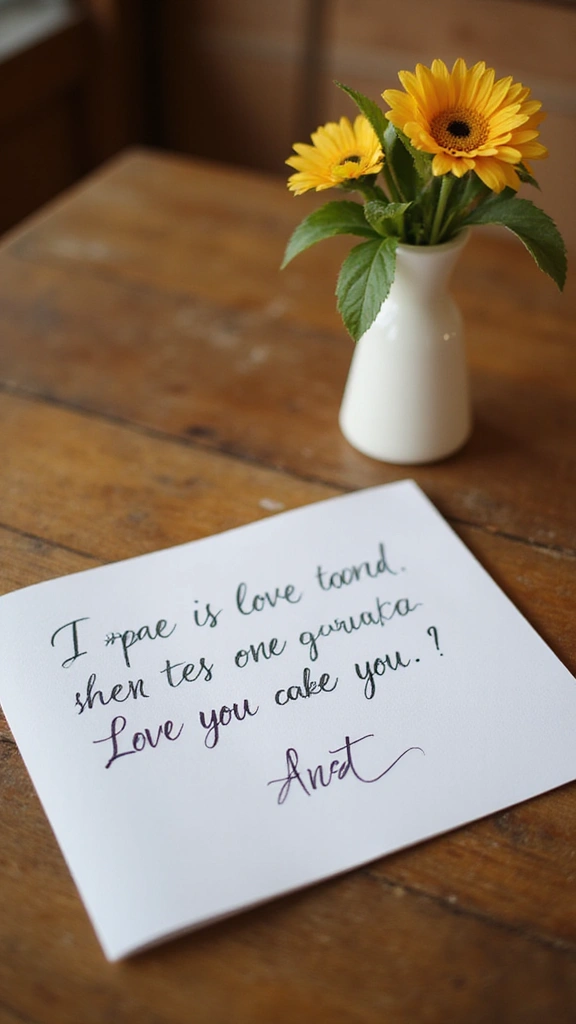 I pae is love toond.
shen tes one guruaka
Love you cake you.?
Anst